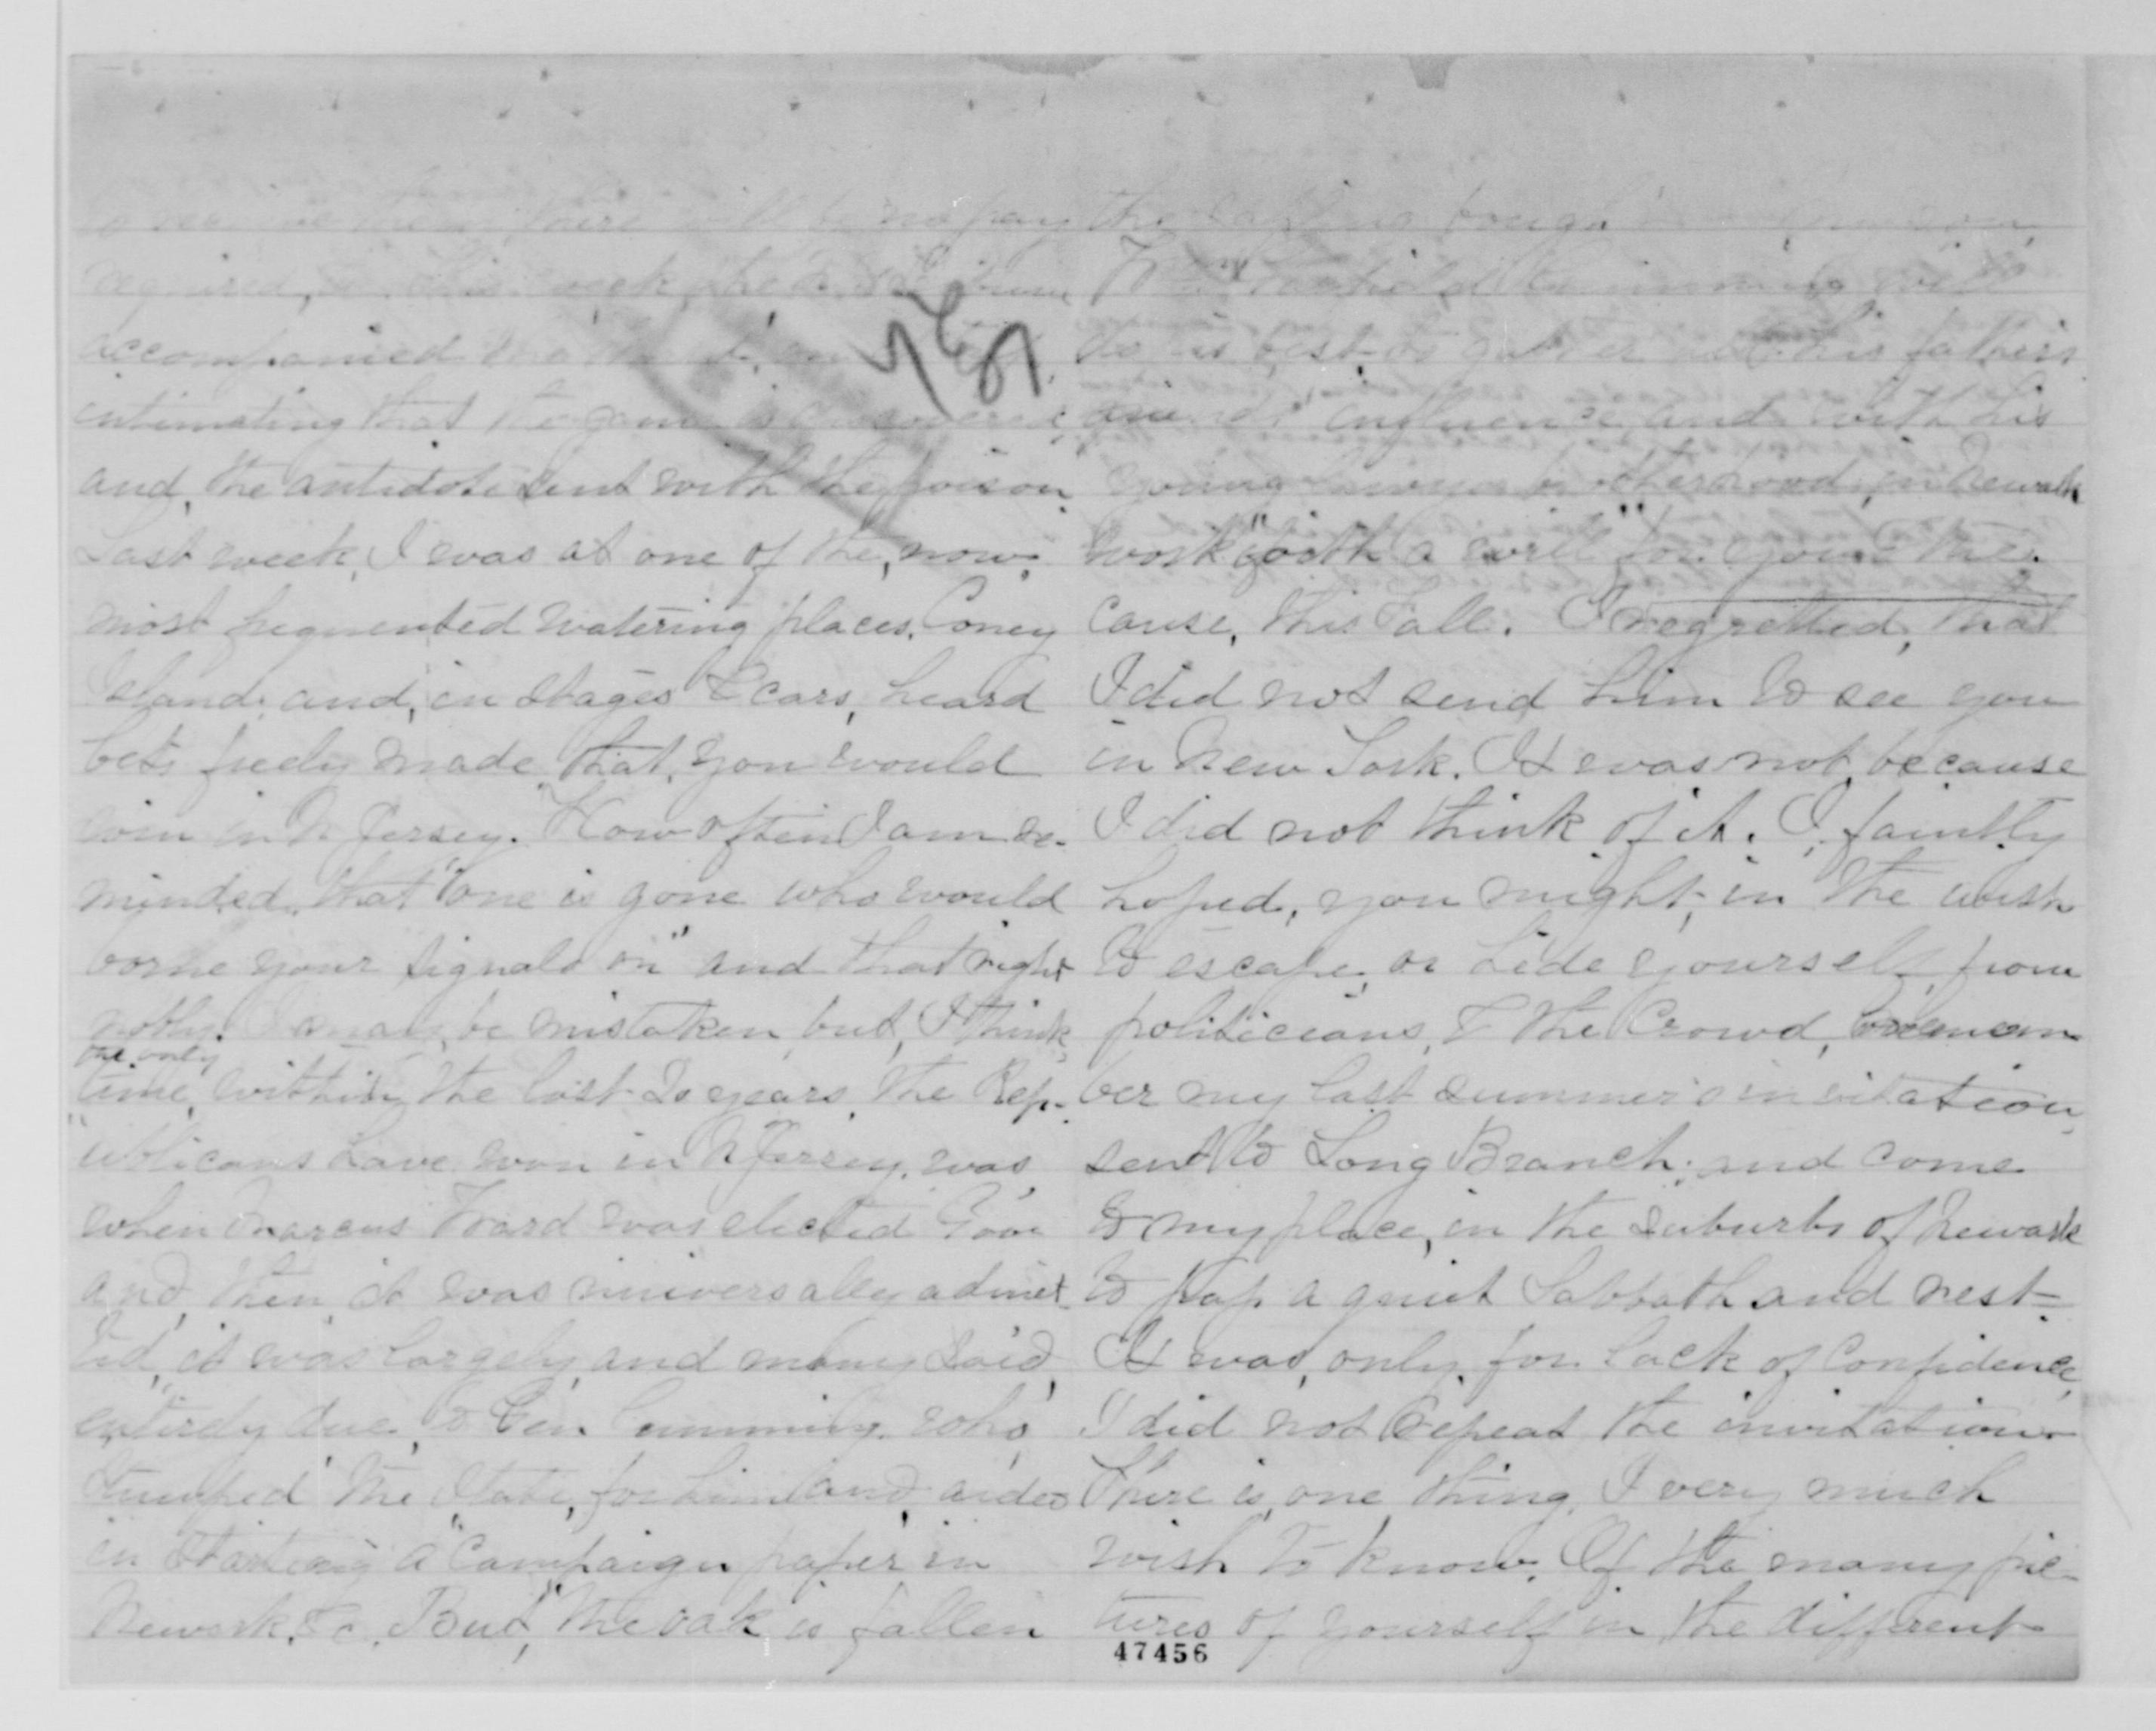 there will be no pay
required,
accompanied
intimating that the game is
and, the antidote sent with the poison
Last week, I was at one of the, now,
most frequented watering places, Coney
Island, and, in stages & cars, heard
bets freely made, that, you would
win in N Jersey. How often I am re-
minded, that "one is gone who would
borne your signals on" and that right
nobly. I may, be mistaken, but, I think,
the only
time, within the last 20 years, the Rep-
ublicans have won in N Jersey, was,
when Marcus Ward was elected Gov
and, then, it was universally admit
ted, it was largely, and many said,
entirely due, to Gen Cumming, who,
stumped the State, for him, and, aided
in starting a "Campaign paper in
Newark, &c. But, "the oak is fallen
the bough
will
his father's
influence and with his
young in Newark
work "with a will" for you & the
cause, this Fall. I regretted, that
I did not send him to see you
in New York. It was not, because
I did not think of it. I, faintly
hoped, you might, in the wish
to escape, or hide yourself, from
politicians, & the Crowd, remem
ber my last summer's invitation,
sent to Long Branch; and come
to my place, in the suburbs of Newark
to pass a quiet Sabbath and rest-
It was, only, for lack of confidence,
I did not repeat the invitation.
There is, one thing, I very much
wish to know. Of the many pic-
tures of yourself in the different
47456